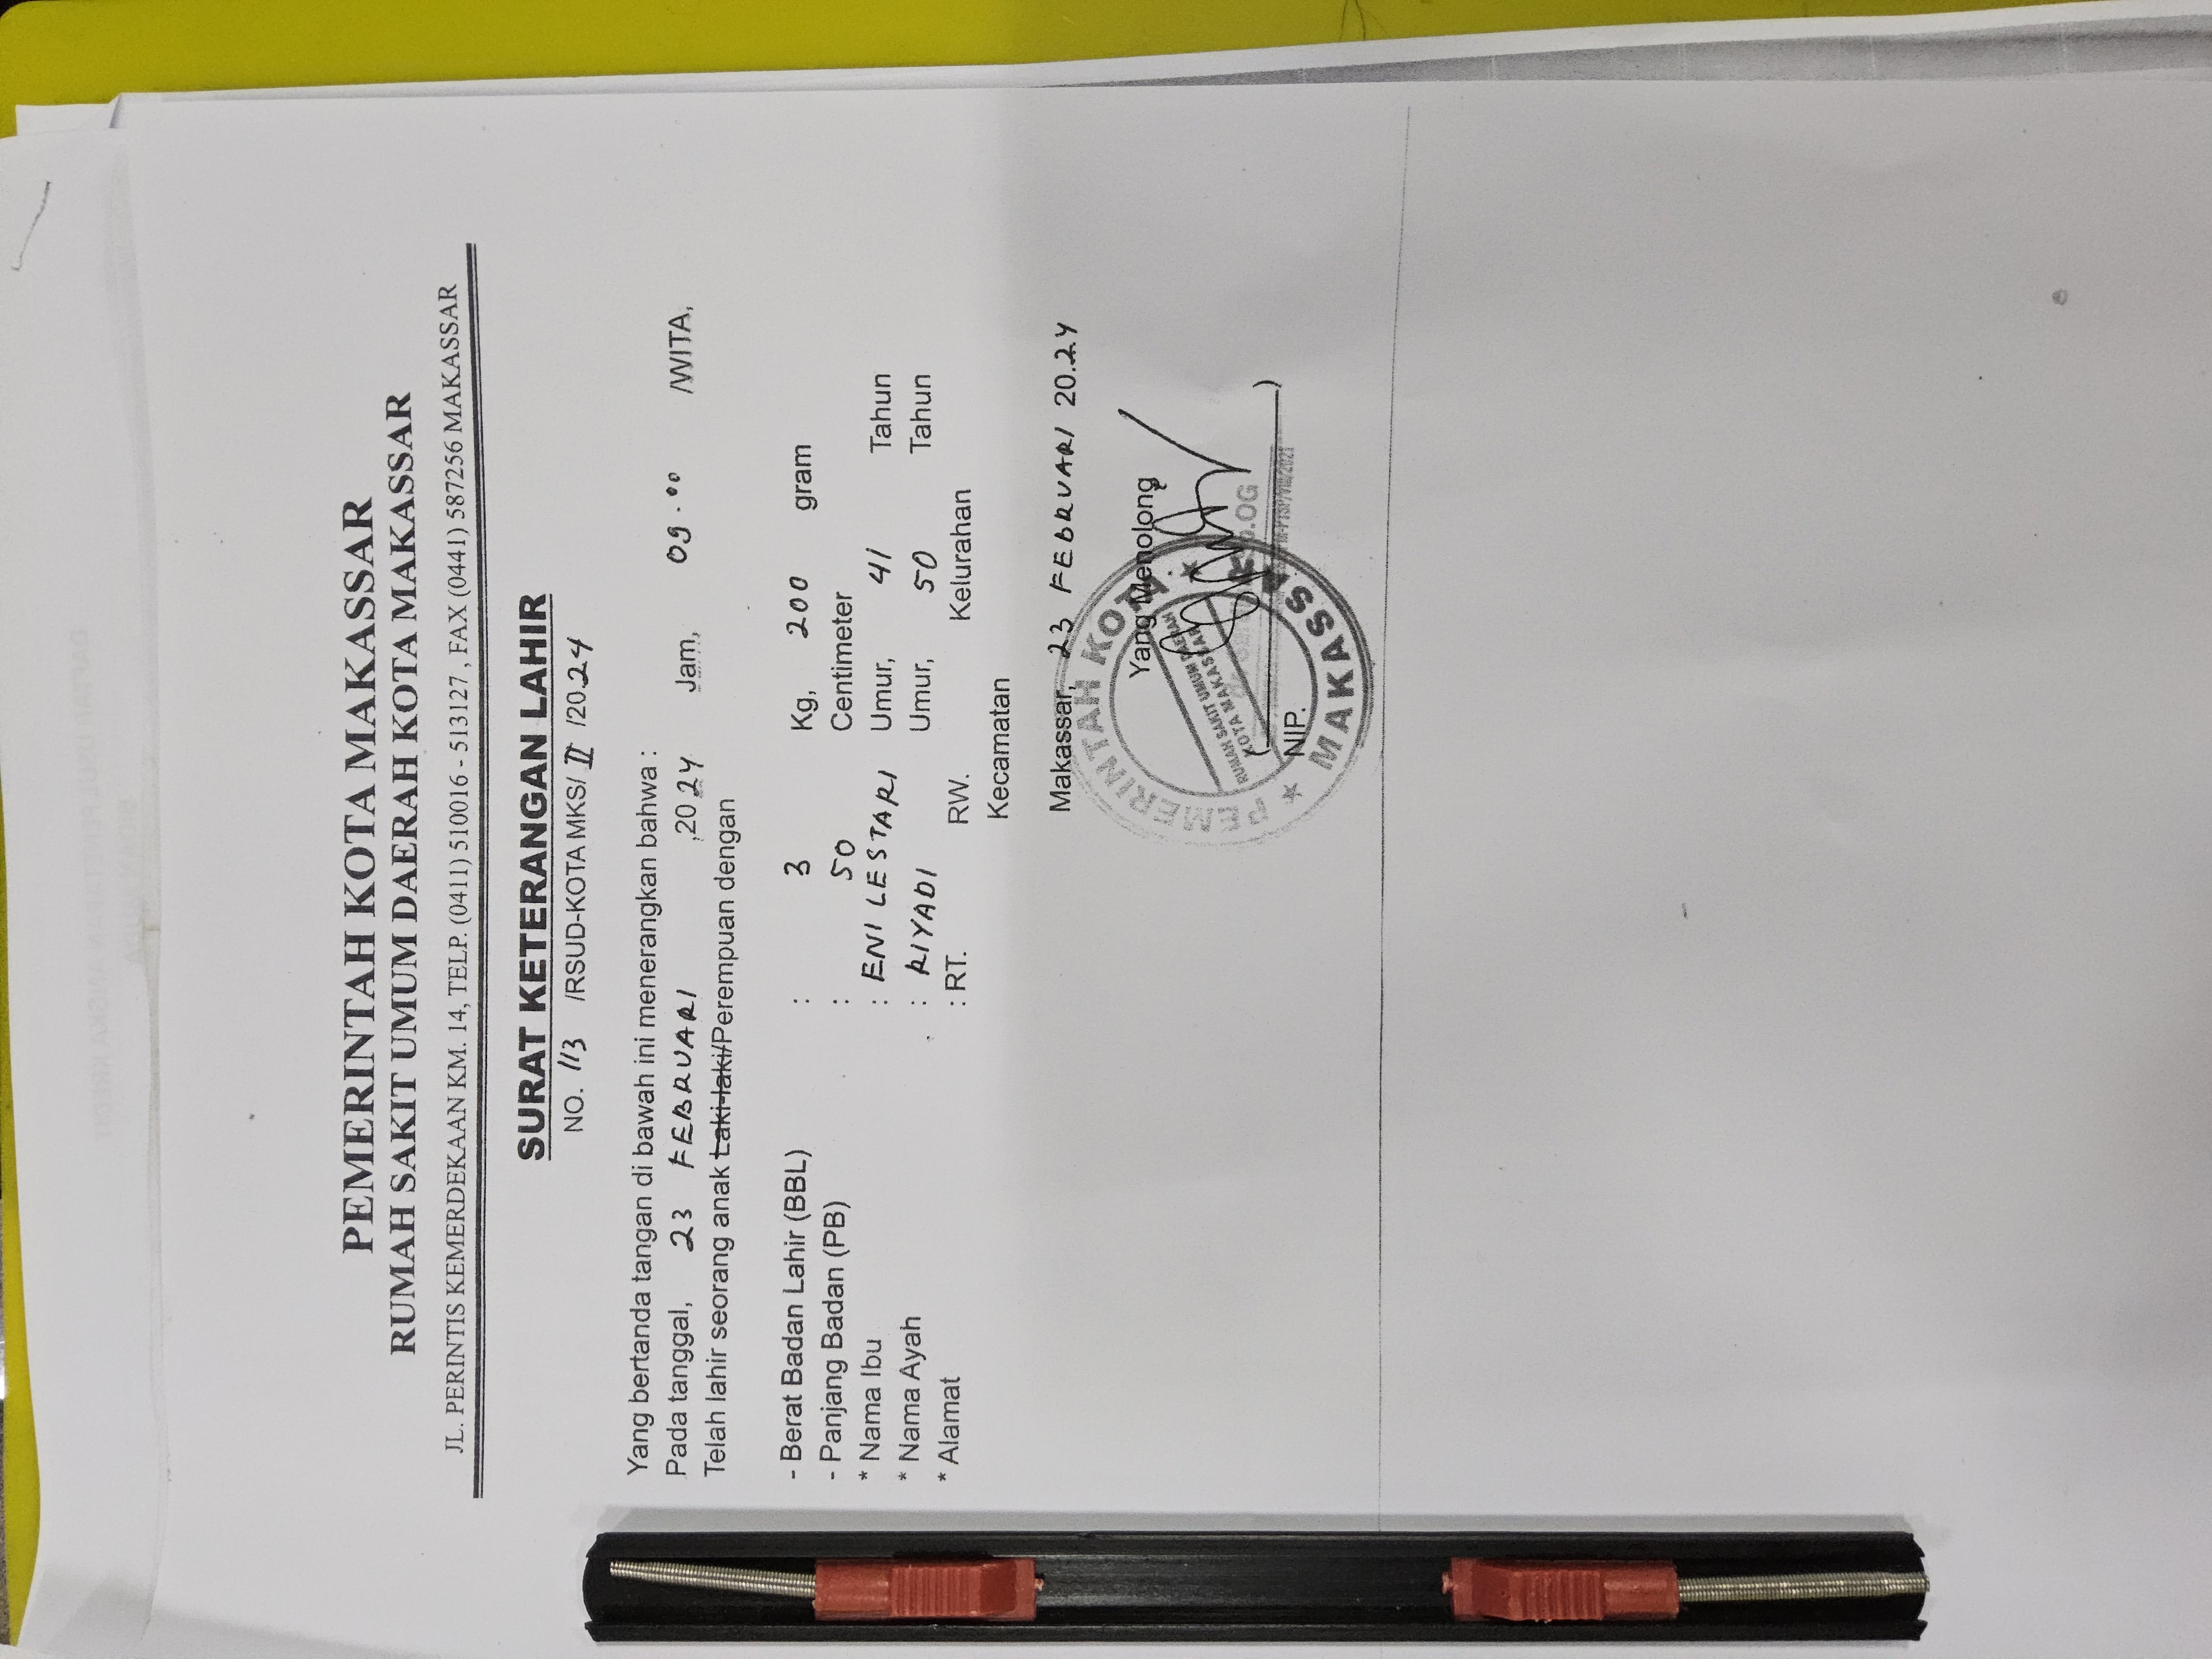 PEMERINTAH KOTA MAKASSAR
RUMAH SAKIT UMUM DAERAH KOTA MAKASSAR
JL. PERINTIS KEMERDEKAAN KM. 14, TELP. (0411) 510016 - 513127 , FAX (0441) 587256 MAKASSAR
SURAT KETERANGAN LAHIR
NO. 113 /RSUD-KOTA MKS/ II /2024
Yang bertanda tangan di bawah ini menerangkan bahwa :
Pada tanggal, 23 FEBRUARI ,2024 Jam, 09.00 /WITA,
Telah lahir seorang anak Laki-laki/Perempuan dengan
- Berat Badan Lahir (BBL) : 3 Kg, 200 gram
- Panjang Badan (PB) : 50 Centimeter
* Nama Ibu : ENI LESTARI Umur, 41 Tahun
* Nama Ayah : RIYADI Umur, 50 Tahun
* Alamat : RT. RW. Kelurahan
Kecamatan
Makassar, 23 FEBRUARI 20.24
Yang Menolong
PEMERINTAH KOTA
RUMAH SAKIT UMUM DAERAH
KOTA MAKASSAR
MAKASSAR
( )
NIP.